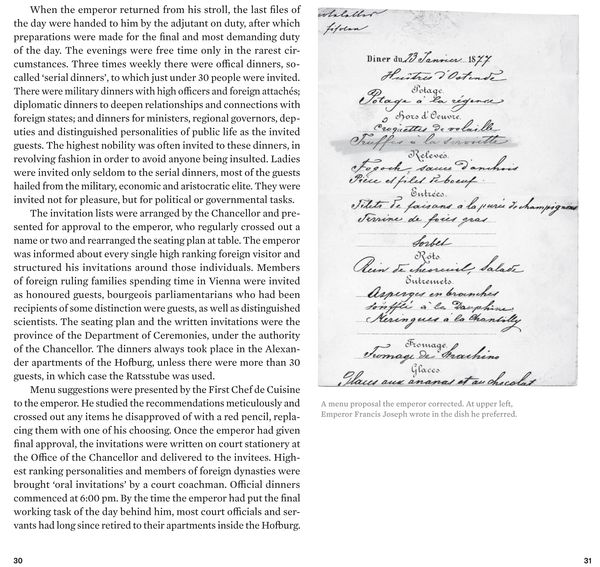 When the emperor returned from his stroll, the last files of
the day were handed to him by the adjutant on duty, after which
preparations were made for the final and most demanding duty
of the day. The evenings were free time only in the rarest cir-
cumstances. Three times weekly there were offical dinners, so-
called ‘serial dinners’, to which just under 30 people were invited.
There were military dinners with high officers and foreign attachés;
diplomatic dinners to deepen relationships and connections with
foreign states; and dinners for ministers, regional governors, dep-
uties and distinguished personalities of public life as the invited
guests. The highest nobility was often invited to these dinners, in
revolving fashion in order to avoid anyone being insulted. Ladies
were invited only seldom to the serial dinners, most of the guests
hailed from the military, economic and aristocratic elite. They were
invited not for pleasure, but for political or governmental tasks.
The invitation lists were arranged by the Chancellor and pre-
sented for approval to the emperor, who regularly crossed out a
name or two and rearranged the seating plan at table. The emperor
was informed about every single high ranking foreign visitor and
structured his invitations around those individuals. Members
of foreign ruling families spending time in Vienna were invited
as honoured guests, bourgeois parliamentarians who had been
recipients of some distinction were guests, as well as distinguished
scientists. The seating plan and the written invitations were the
province of the Department of Ceremonies, under the authority
of the Chancellor. The dinners always took place in the Alexan-
der apartments of the Hofburg, unless there were more than 30
guests, in which case the Ratsstube was used.
Menu suggestions were presented by the First Chef de Cuisine
to the emperor. He studied the recommendations meticulously and
crossed out any items he disapproved of with a red pencil, repla-
cing them with one of his choosing. Once the emperor had given
final approval, the invitations were written on court stationery at
the Office of the Chancellor and delivered to the invitees. High-
est ranking personalities and members of foreign dynasties were
brought ‘oral invitations’ by a court coachman. Official dinners
commenced at 6:00 pm. By the time the emperor had put the final
working task of the day behind him, most court officials and ser-
vants had long since retired to their apartments inside the Hofburg.
30
Dîner du 23 Janvier 1877
Huîtres d'Ostende
Potage.
Potage à la régence
Hors d'Oeuvre.
Croquettes de volaille
Truffes à la serviette
Relevés.
Fogoch, sauce d'anchois
Pièce et filet de boeuf.
Entrées.
Filets de faisans a la purée de champignons
Terrine de foies gras
Sorbet
Rôts.
Rein de chevreuil, Salade
Entremets.
Asperges en branches
Soufflé à la Dauphine
Meringues à la Chantilly
Fromage.
Fromage de Strachino
Glaces
Glaces aux ananas et au chocolat
A menu proposal the emperor corrected. At upper left,
Emperor Francis Joseph wrote in the dish he preferred.
31